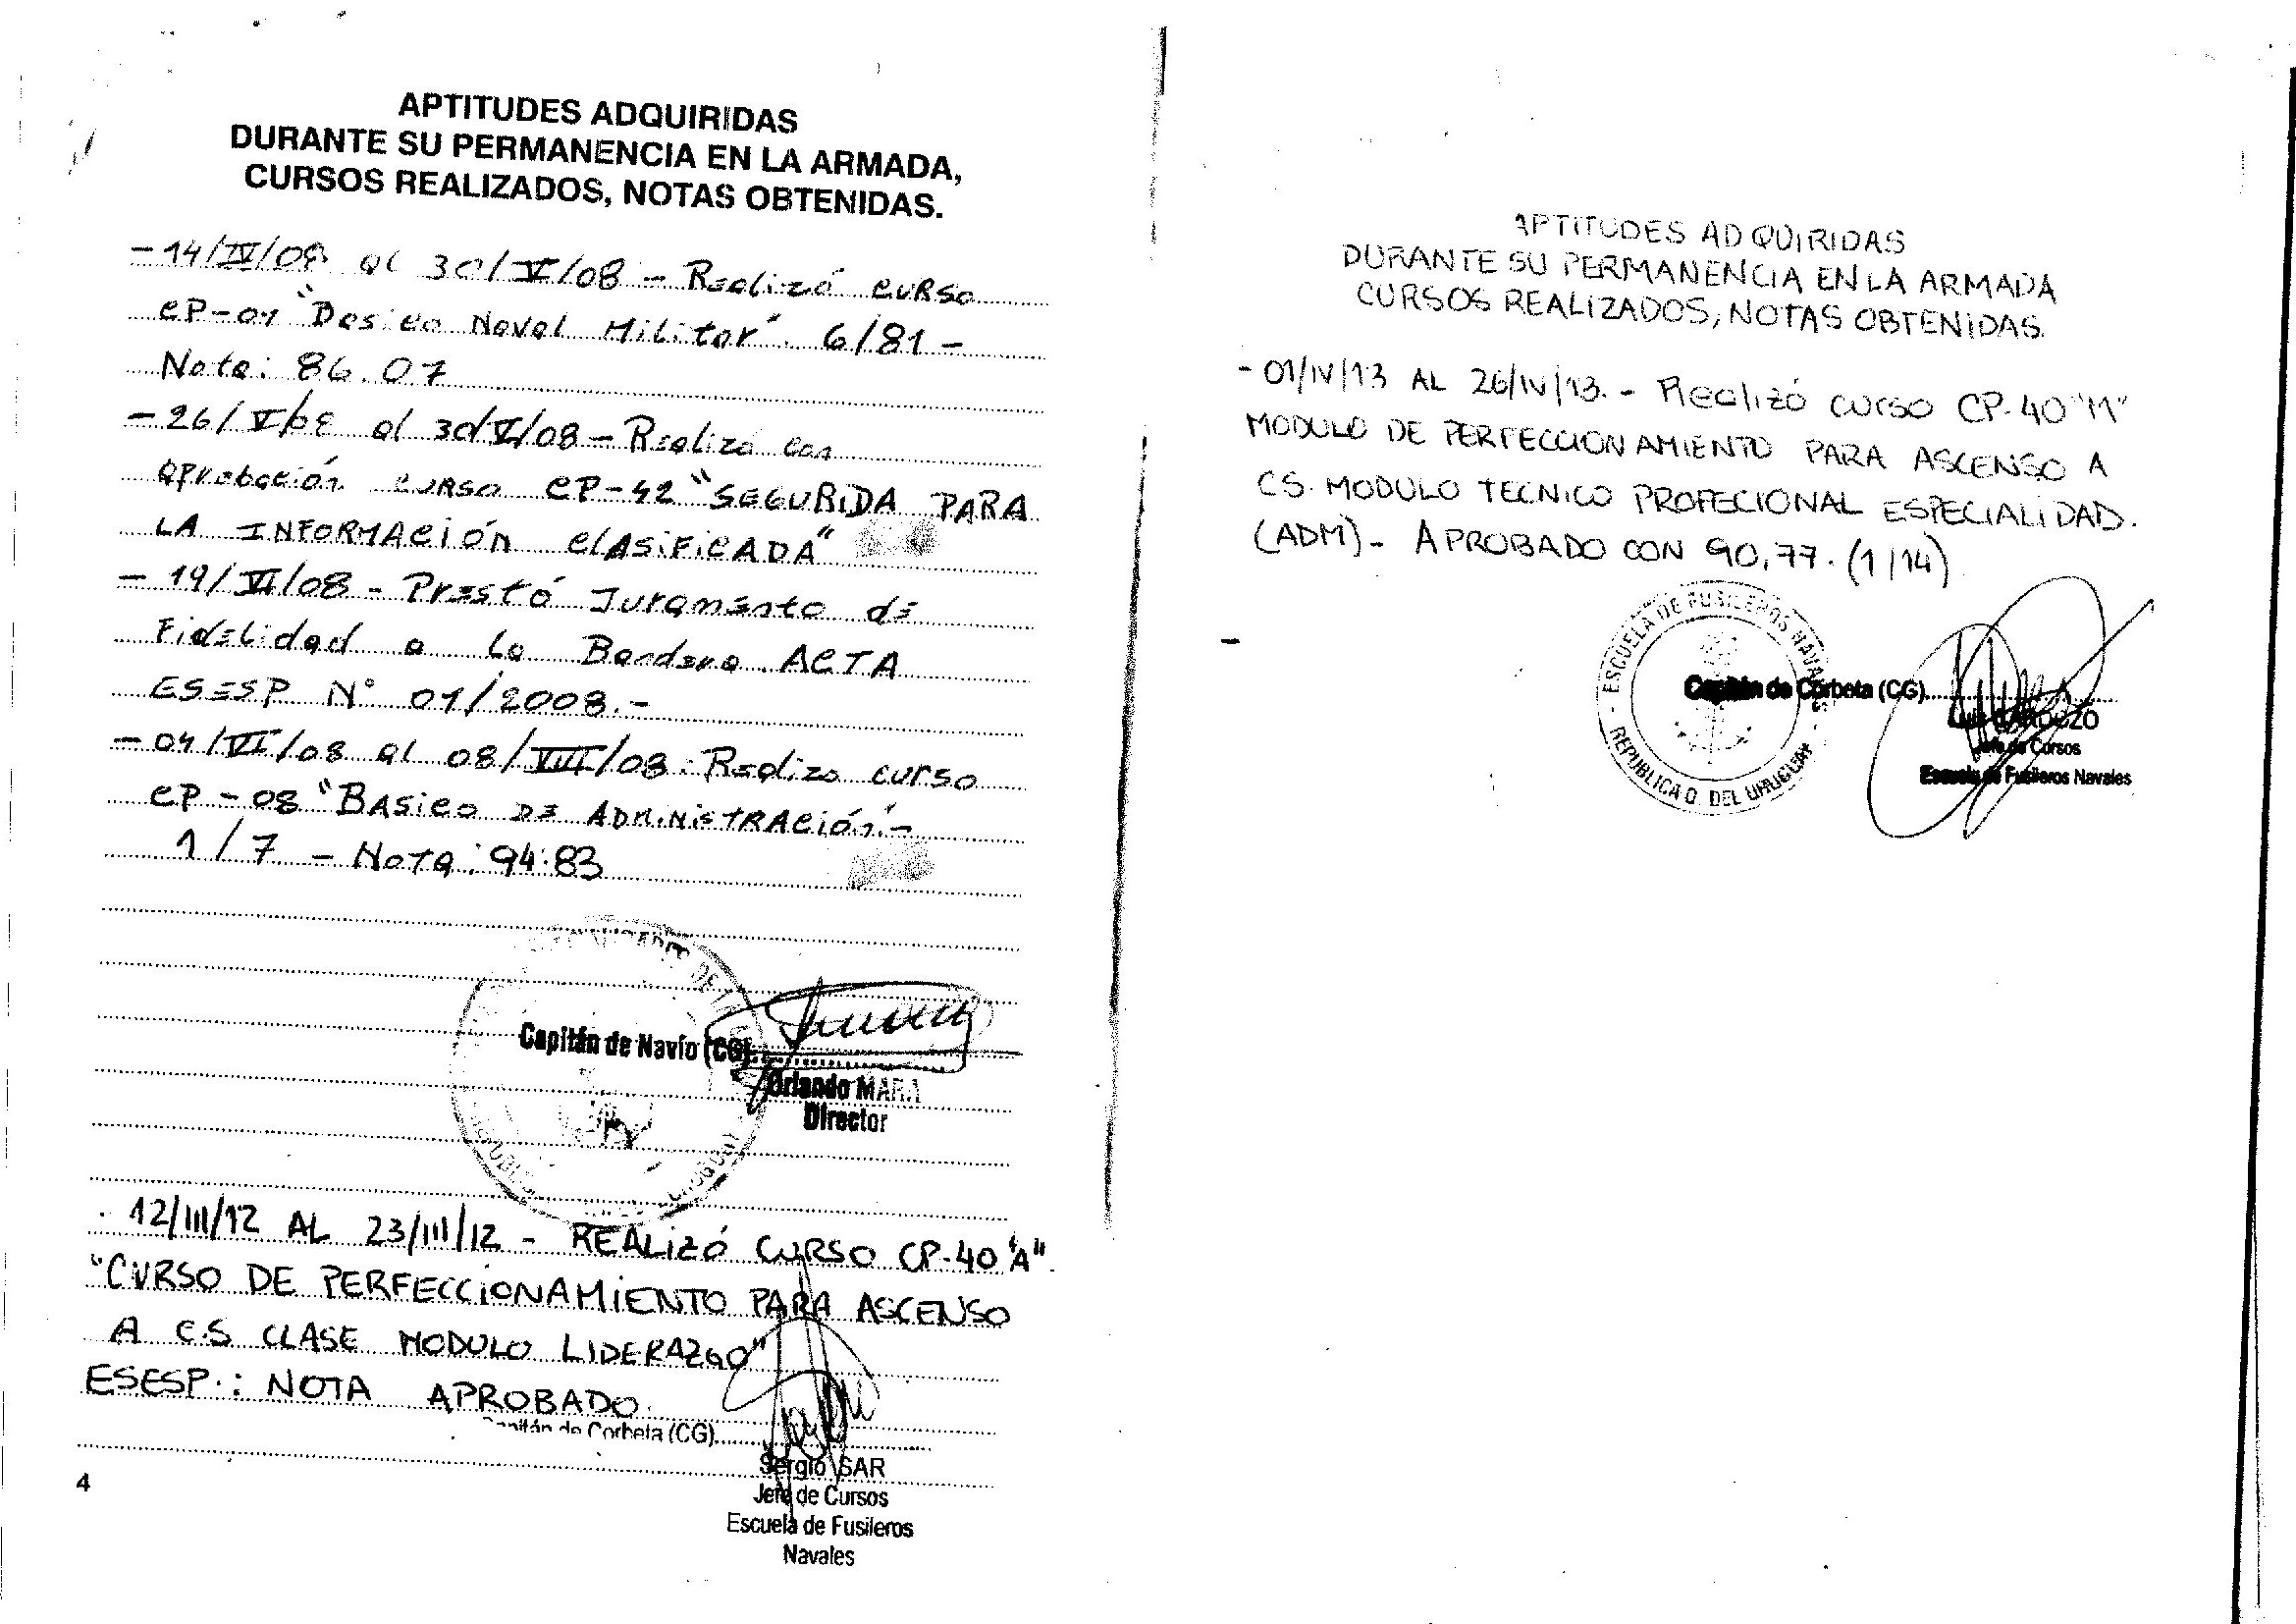 APTITUDES ADQUIRIDAS
DURANTE SU PERMANENCIA EN LA ARMADA,
CURSOS REALIZADOS, NOTAS OBTENIDAS.
- 14/IV/08 al 30/V/08 - Realizó curso
CP-01 "Basico Naval Militar". 6/81 -
Nota: 86.07
- 26/V/08 al 30/V/08 - Realizó con
aprobación curso CP-42 "SEGURIDA PARA
LA INFORMACIÓN CLASIFICADA"
- 19/VI/08 - Prestó Juramento de
Fidelidad a la Bandera. ACTA
ESESP N° 01/2008.-
- 04/VI/08 al 08/VIII/08: Realizo curso
CP - 08 "BASICO DE ADMINISTRACIÓN" -
1/7 - Nota: 94.83
Capitán de Navío (CG)
Orlando MARA
Director
- 12/III/12 AL 23/III/12 - REALIZÓ CURSO CP-40 "A".
"CURSO DE PERFECCIONAMIENTO PARA ASCENSO
A C.S CLASE MODULO LIDERAZGO"
ESESP.: NOTA APROBADO.
Capitán de Corbeta (CG)
Sergio SAR
Jefe de Cursos
Escuela de Fusileros
Navales
4
APTITUDES ADQUIRIDAS
DURANTE SU PERMANENCIA EN LA ARMADA
CURSOS REALIZADOS, NOTAS OBTENIDAS.
- 01/IV/13 AL 26/IV/13. - Realizó curso CP-40 "M"
MODULO DE PERFECCIONAMIENTO PARA ASCENSO A
CS. MODULO TECNICO PROFECIONAL ESPECIALIDAD.
(ADM) - APROBADO CON 90,77. (1/14)
ESCUELA DE FUSILEROS NAVALES
REPUBLICA O. DEL URUGUAY
Capitán de Corbeta (CG)
Luis CARDOZO
Jefe de Cursos
Escuela de Fusileros Navales